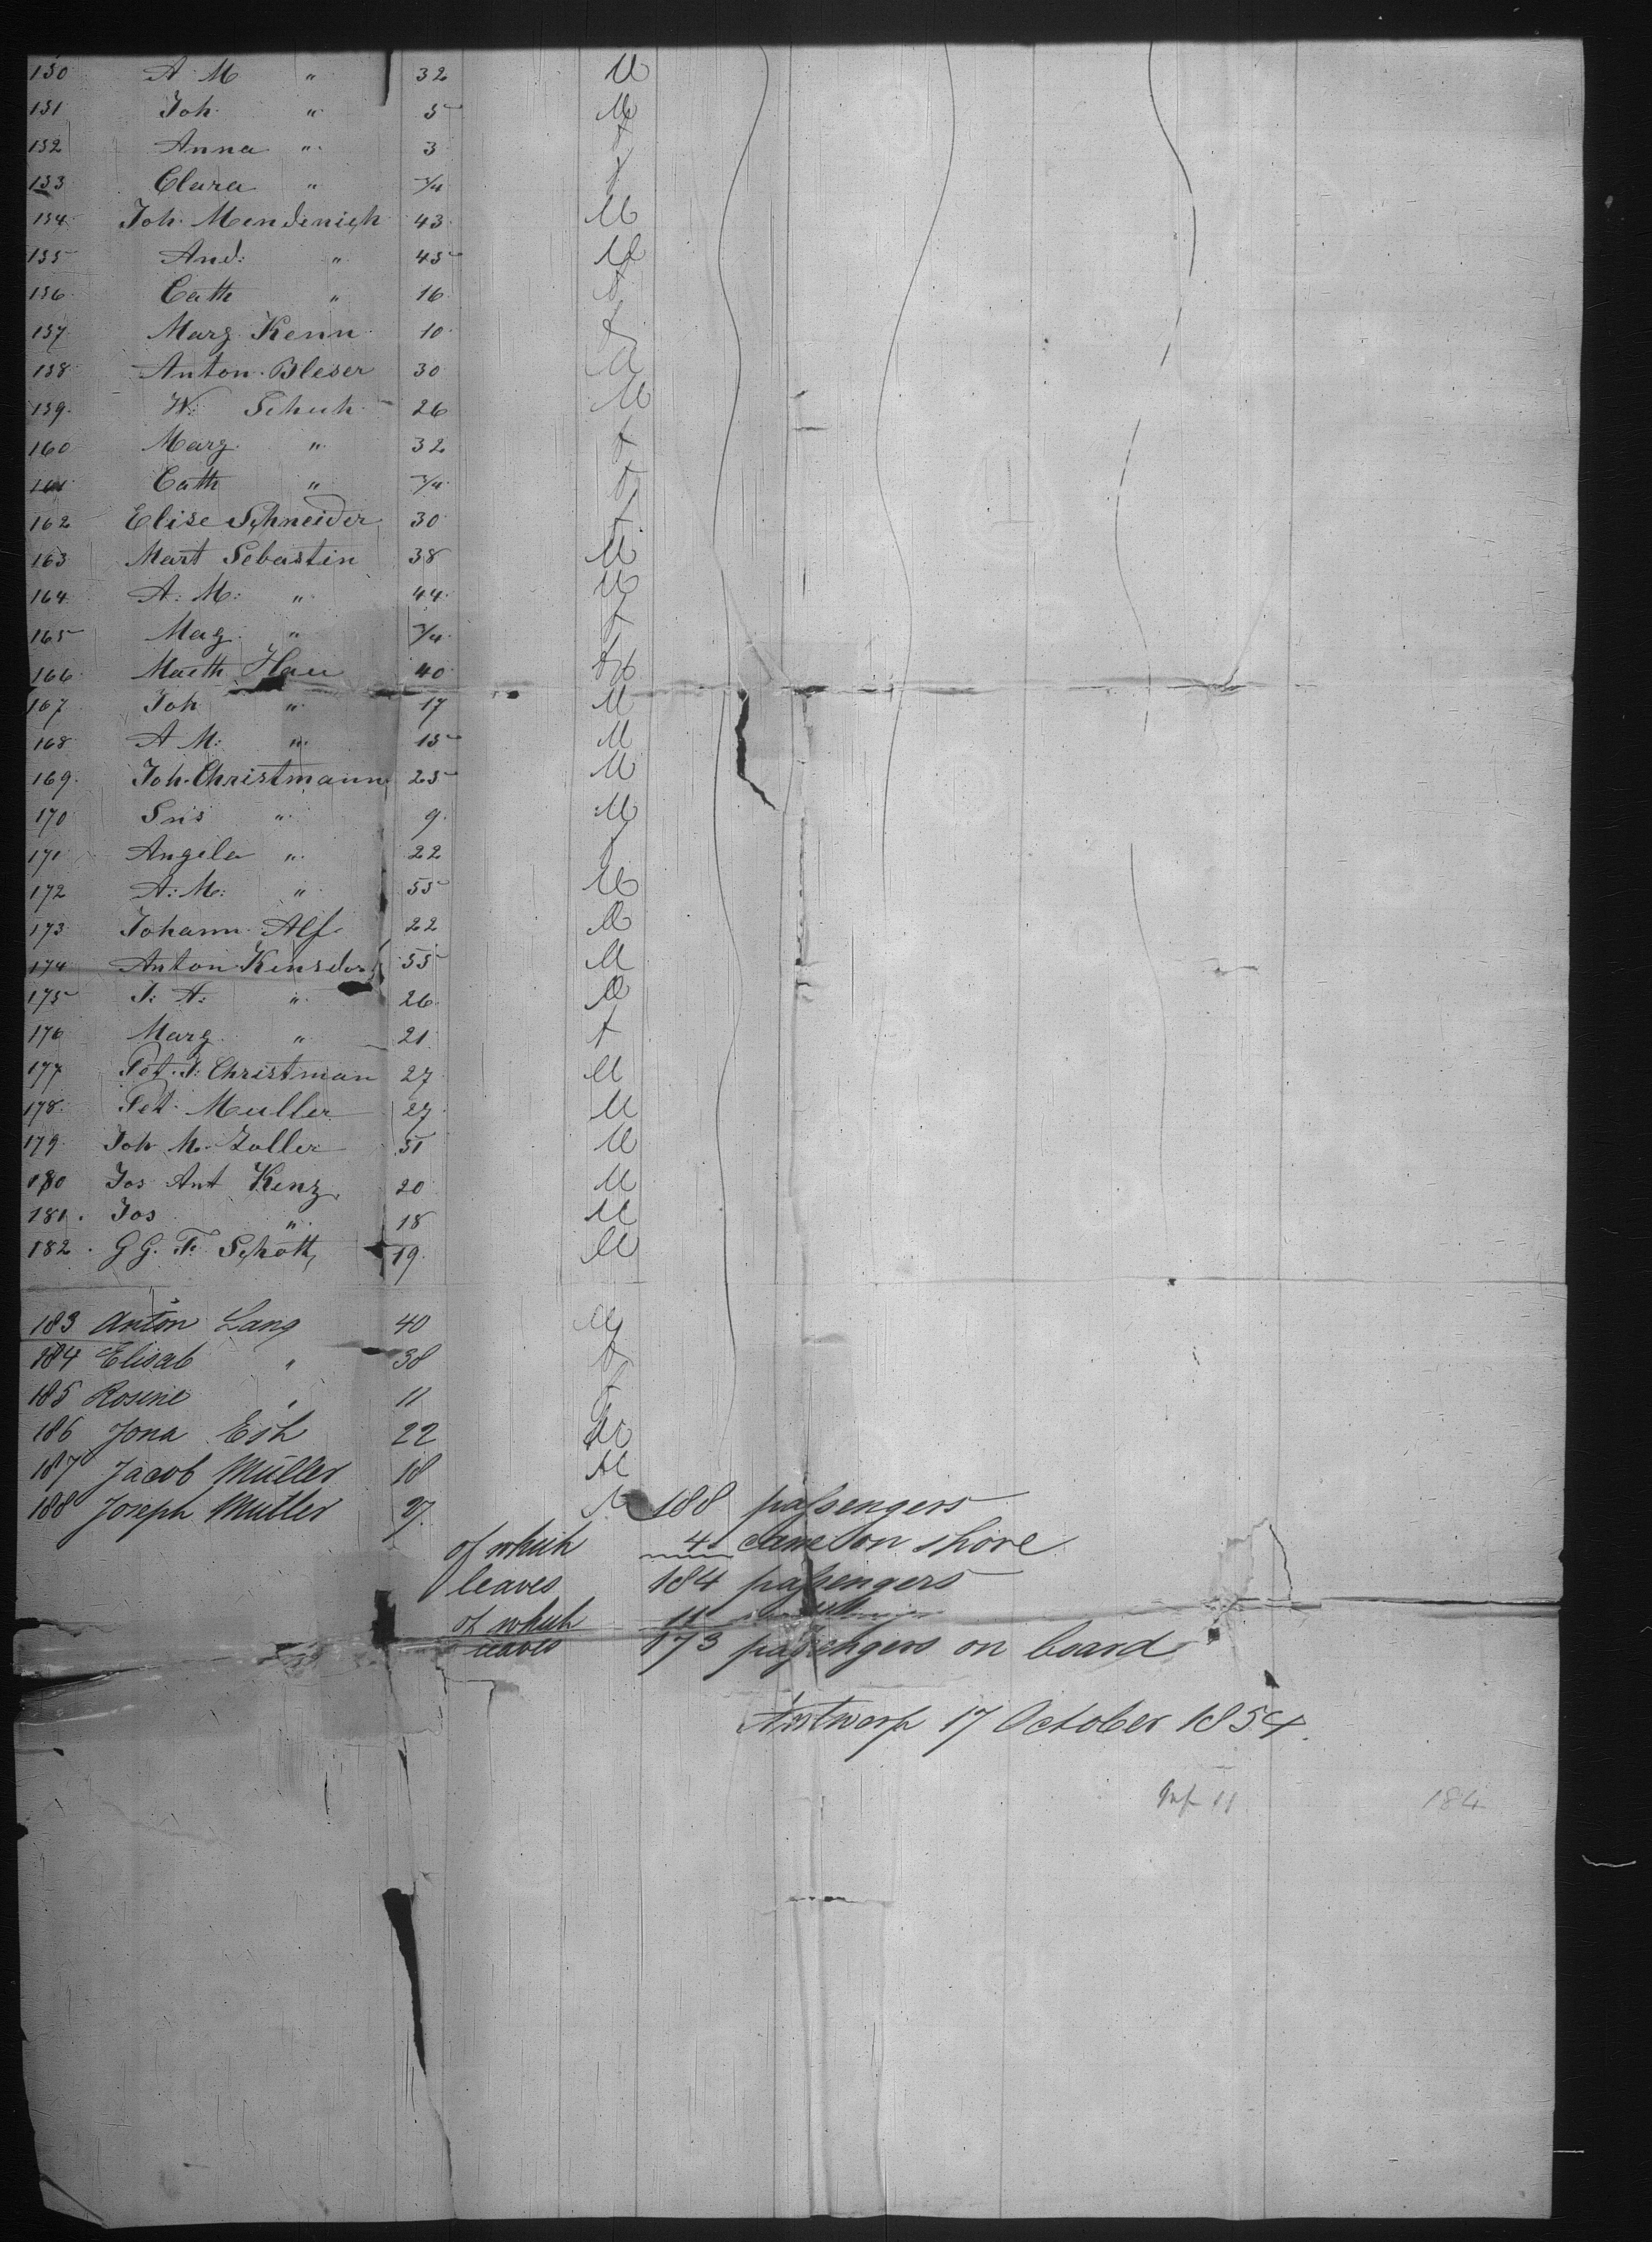 150 A. M " 32 M
151 Joh. " 5 M
152 Anna " 3 f
153 Clara " 3/4 f
154 Joh. Mendenich 43 M
155 And: " 45 M
156 Cath " 16 f
157 Marg Kenn 10 f
158 Anton Bleser 30 M
159. W: Schuh 26 M
160 Marg. " 32 f
161 Cath " 3/4 f
162 Elise Schneider 30 f
163 Mart Sebastin 38 M
164 A: M: " 44 M
165 Mag. " 3/4 f
166 Math Hau 40 M
167 Joh " 17 M
168 A M: " 15 M
169. Joh. Christmann 25 M
170 Sns " 9 M
171 Angela " 22 f
172 A: M: " 55 M
173 Johann Alf 22 M
174 Anton 55 M
175 J: A: " 26 M
176 Marg " 21 f
177 Pet. J: Christman 27 M
178. Pet. Muller 27 M
179. Joh M. Zoller 51 M
180 Jos Ant Kenz 20 M
181. Jos " 18 M
182. G G. F. Schott 19. M
183 Anton Lang 40 M
184 Elisab " 38 f
185 Rosine " 11 f
186 Jona Esh 22 M
187 Jacob Müller 18 M
188 Joseph Muller 27. M 188 passengers
of which 4 came on shore
leaves 184 passengers
of which 11
leaves 173 passengers on board
Antwerp 17 October 1854.
Inf 11 184